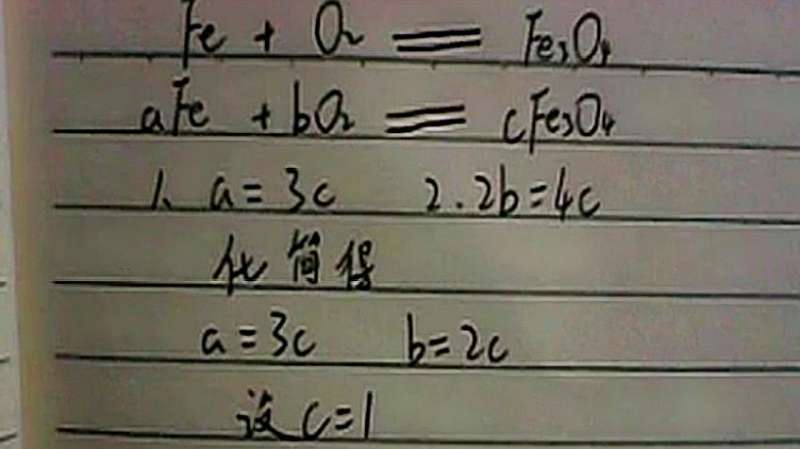 Fe + O₂ = Fe₃O₄
aFe + bO₂ = cFe₃O₄
1、a=3c 2.2b=4c
化简得
a=3c b=2c
设c=1